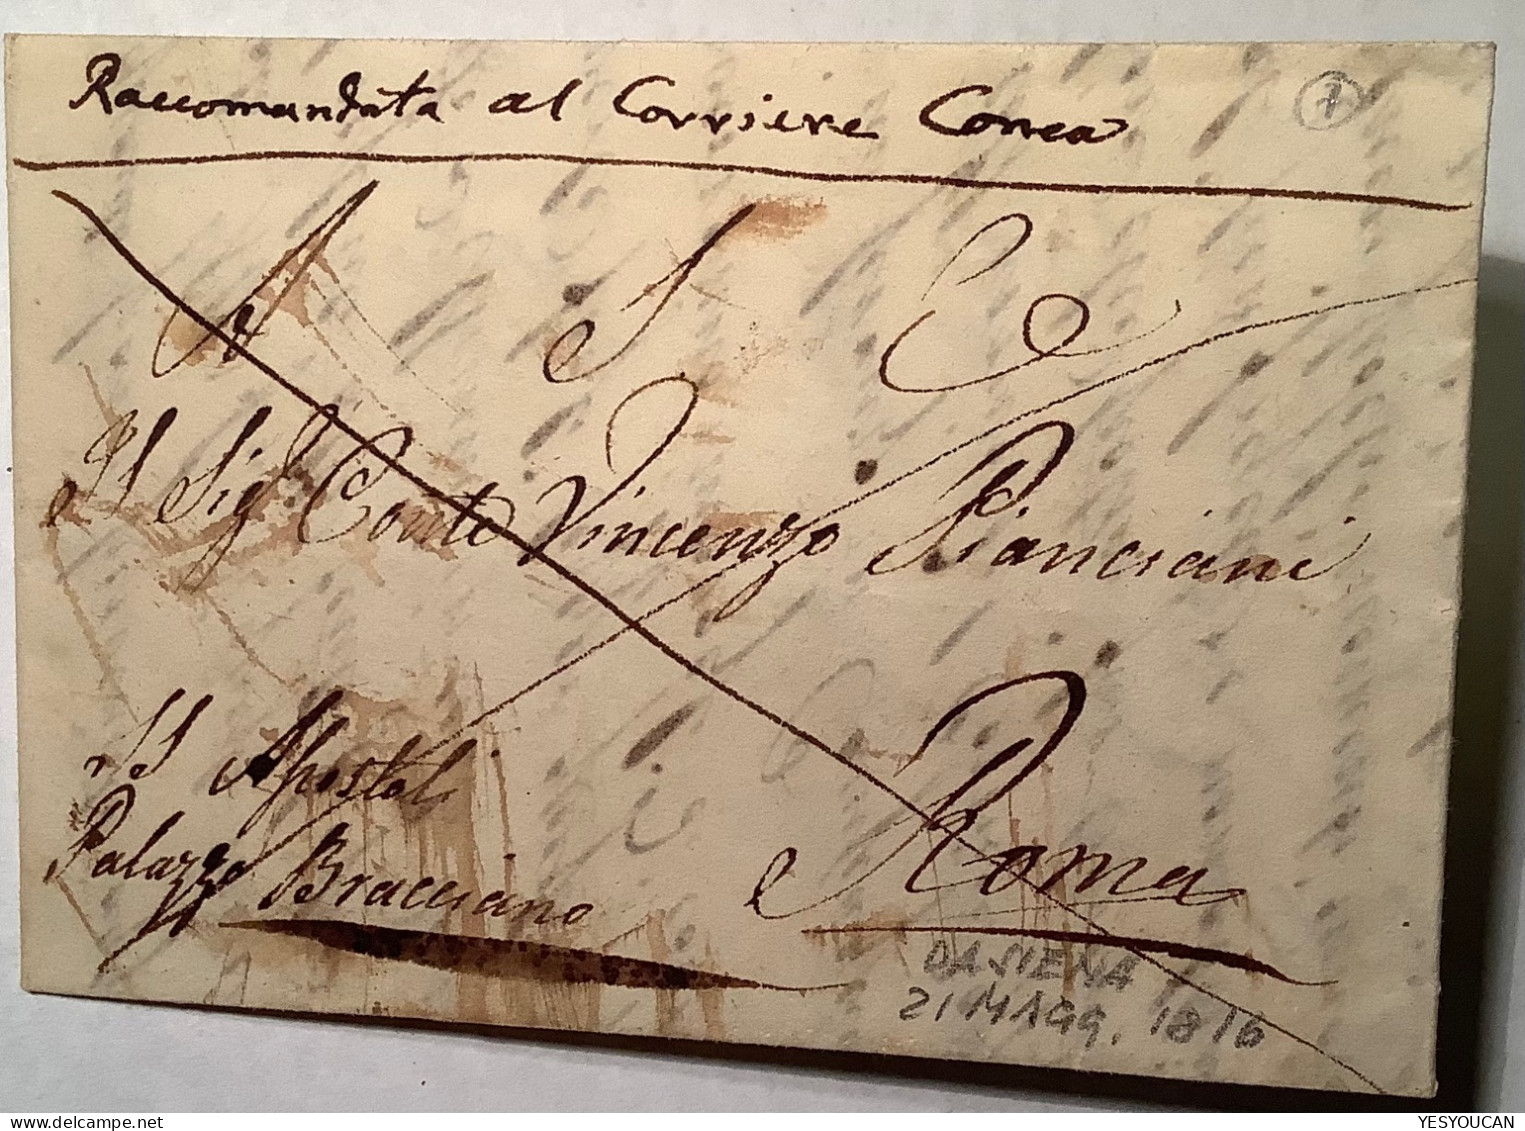 Raccomandata al Corriere Conca
7
A S E
Il Sig.r Conte Vincenzo Pianciani
SS Apostoli
Palazzo Bracciano
Roma
DA SIENA
21 MAGG. 1816
YESYOUCAN